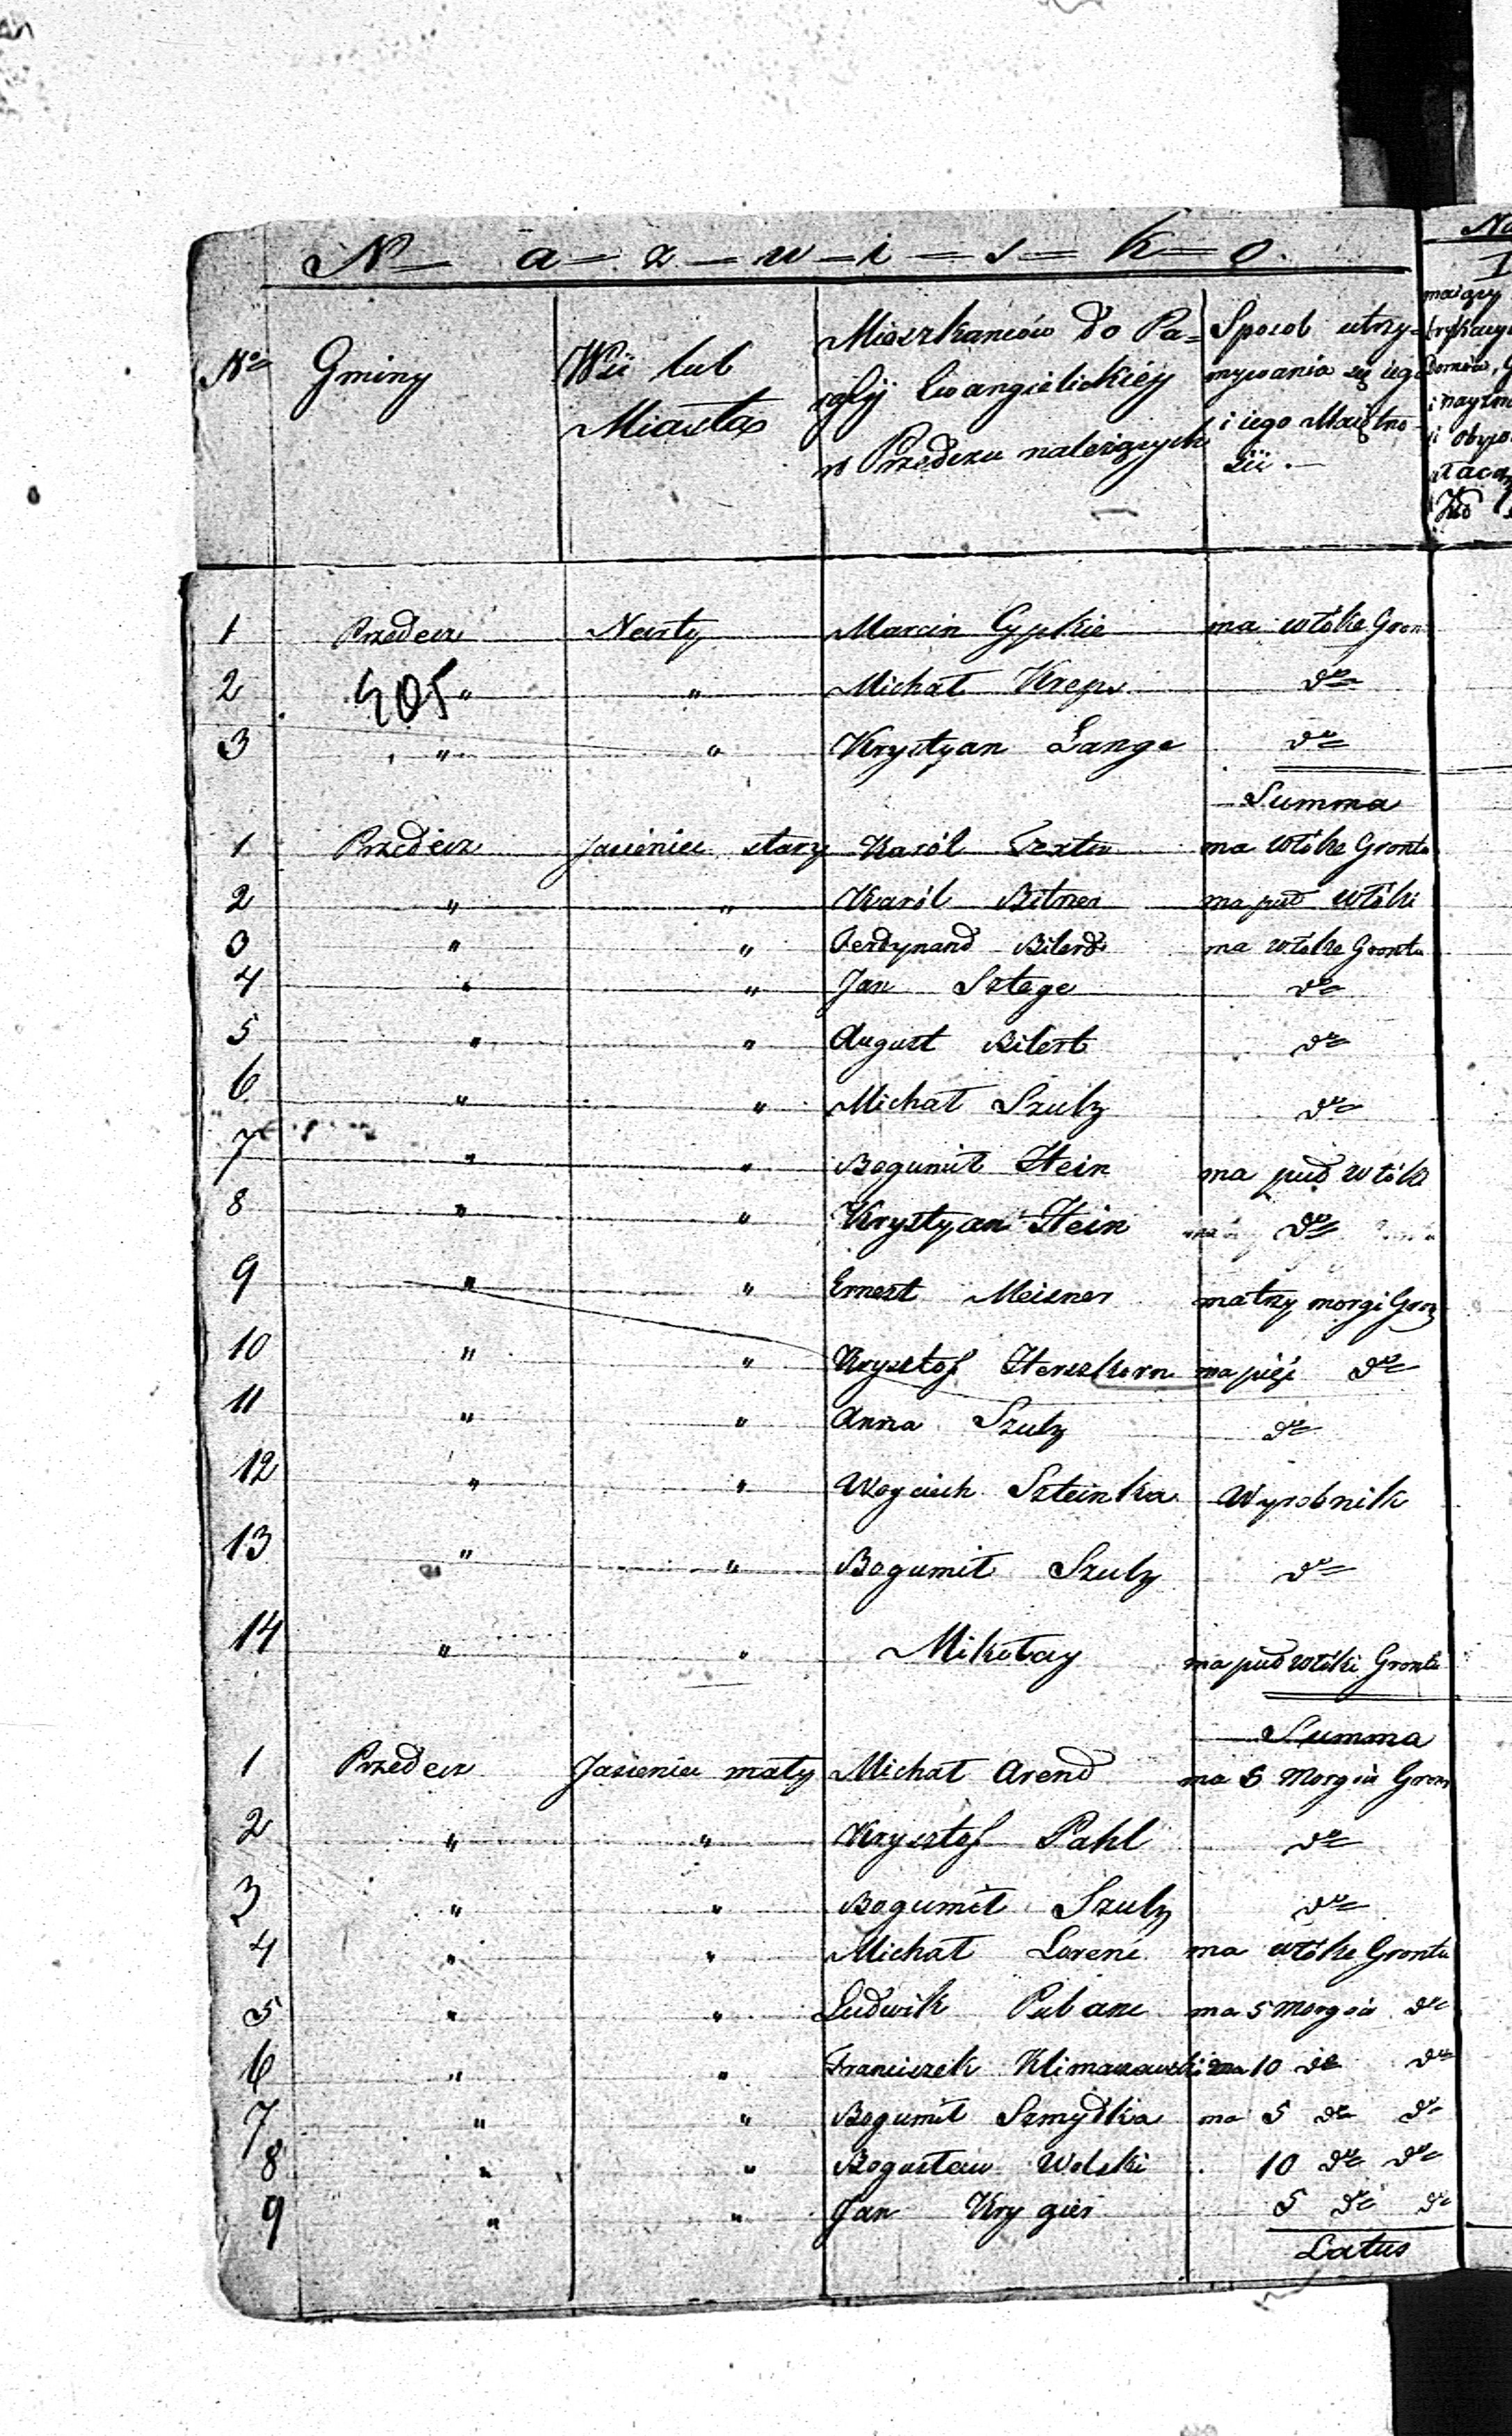 N a z w i s k o
No
Gminy
Wsi lub
Miasta
Mieszkanców do Pa=
rafij Ewangielickiéy
w Przedczu należących
Sposob utrzy=
mywania się iego
i iego Maiętno-
ści.
1 Przedecz Narty Marcin Gypkie ma włóke Gron
2 " " Michał Kreps do
405
3 " " Krystyan Lange do
Summa
1 Przedecz Jasieniec stary Karól ma włóke Grontu
2 " " Karól Bitner ma puł włóki
3 " " Ferdynand Bilerd ma włóke Grontu
4 " " Jan Sztege do
5 " " August Bilert do
6 " " Michał Szulz do
7 " " Bogumił Htein ma puł włóki
8 " " Krystyan Htein do
9 " " Ernest Meisner ma trzy morgi Gron
10 " " Krysztof Herszkorn ma pięć do
11 " " Anna Szulz do
12 " " Woyciech Szteinka Wyrobnik
13 " " Bogumił Szulz do
14 " " Mikołay ma puł włóki Grontu
Summa
1 Przedecz Jasieniec mały Michał Arend ma 5 Morgów Gron
2 " " Krysztof Pahl do
3 " " Bogumił Szulz do
4 " " Michał Lorenc ma włóke Grontu
5 " " Ludwik Pubanc ma 5 Morgów do
6 " " Franciszek Klimaszewski ma 10 do do
7 " " Bogumił Szmydka ma 5 do do
8 " " Bogusław Wolski 10 do do
9 " " Jan Krygier 5 do do
Latus